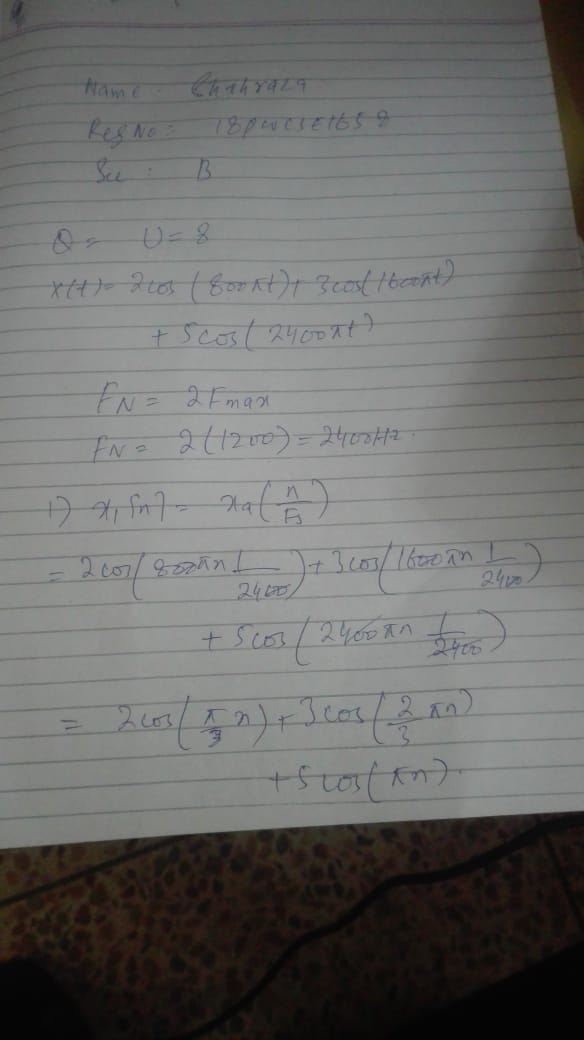 Name : Shahraza
Reg No = 18pwcse1658
Sec : B
Q = U = 8
x(t) = 2cos (800πt) + 3cos(1600πt)
+ 5cos( 2400πt)
FN = 2Fmax
FN = 2(1200) = 2400Hz.
1) x1[n] = xa(n/Fs)
= 2cos(800πn 1/2400) + 3cos(1600πn 1/2400)
+ 5cos( 2400πn 1/2400)
= 2cos(π/3 n) + 3cos(2/3 πn)
+ 5cos(πn).